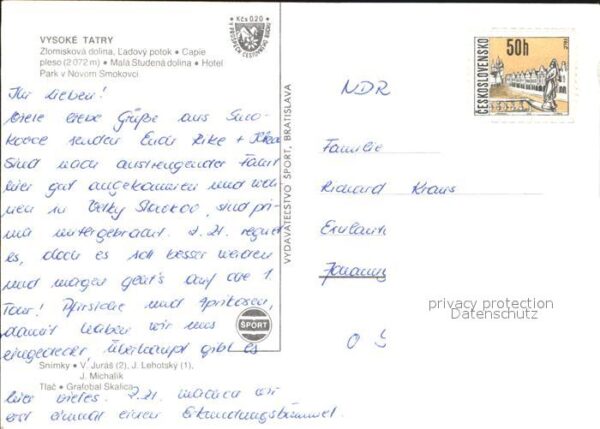 VYSOKÉ TATRY
Zlomisková dolina, Ľadový potok • Capie
pleso (2 072 m) • Malá Studená dolina • Hotel
Park v Novom Smokovci
Kčs 0,20
V PROSPECH CESTOVNÉHO RUCHU
Ihr Lieben!
Viele liebe Grüße aus Smo-
kovce senden Euch Rike +
Sind nach anstrengender Fahrt
hier gut angekommen und woh-
nen in Velky Slavkov, sind pri-
ma untergebracht. Z. Zt. regnet
es, doch es soll besser werden
und morgen geht's auf die 1.
Tour! Pfirsiche und Aprikosen,
damit haben wir uns
eingedeckt, überhaupt gibt es
Snímky • V. Juráš (2), J. Lehotský (1),
J. Michalík
Tlač • Grafobal Skalica
hier vieles. Z. Zt. machen wir
erst einmal einen Erkundungsbummel.
VYDAVATEĽSTVO ŠPORT, BRATISLAVA
ŠPORT
ČESKOSLOVENSKO
50h
TELČ
NDR
Familie
Richard Kraus
privacy protection
Datenschutz